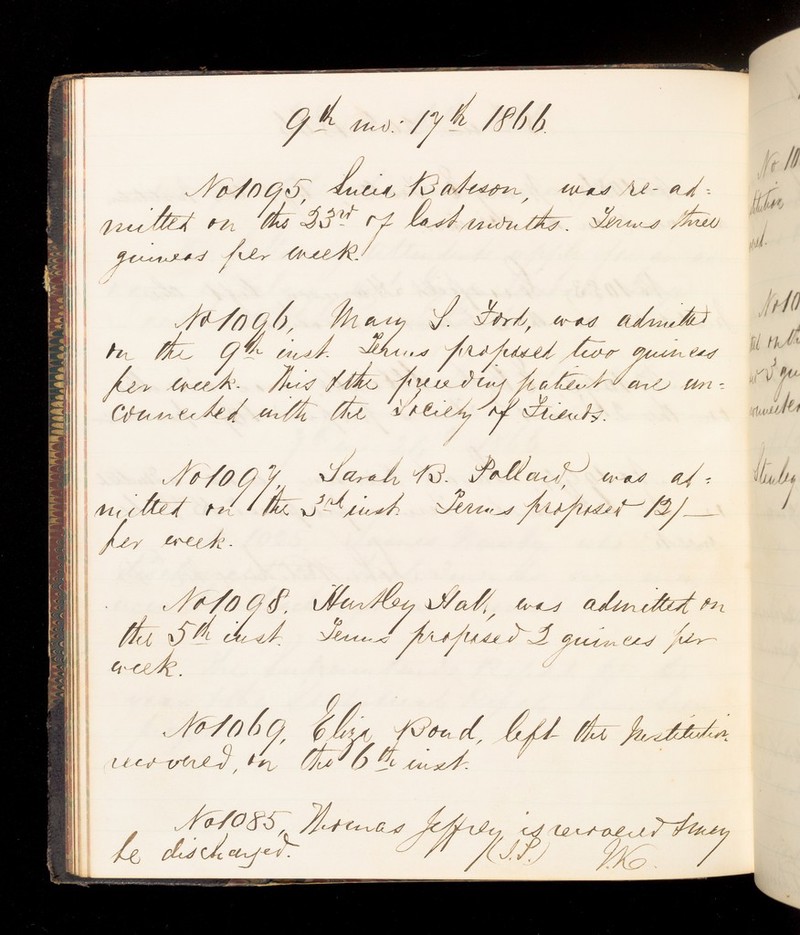 9th mo: 17th 1866.
No 1095, Lucia Bateson, was re-ad=
mitted on the 23rd of last months. Terms three
guineas per week.
No 1096, Mary S. Ford, was admitted
on the 9th inst. Terms proposed two guineas
per week. This & the preceding patient are un=
connected with the Society of Friends.
No 1097, Sarah B. Pollard, was ad=
mitted on the 3rd inst. Terms proposed 12/–
per week.
No 1098, Huntley Hall, was admitted on
the 5th inst. Terms proposed 2 guineas per
week.
No 1069, Eliza Bond, left the Institution
recovered, on the 6th inst.
No 1085, Thomas Jeffrey is recovered & may
be discharged. (J.K.